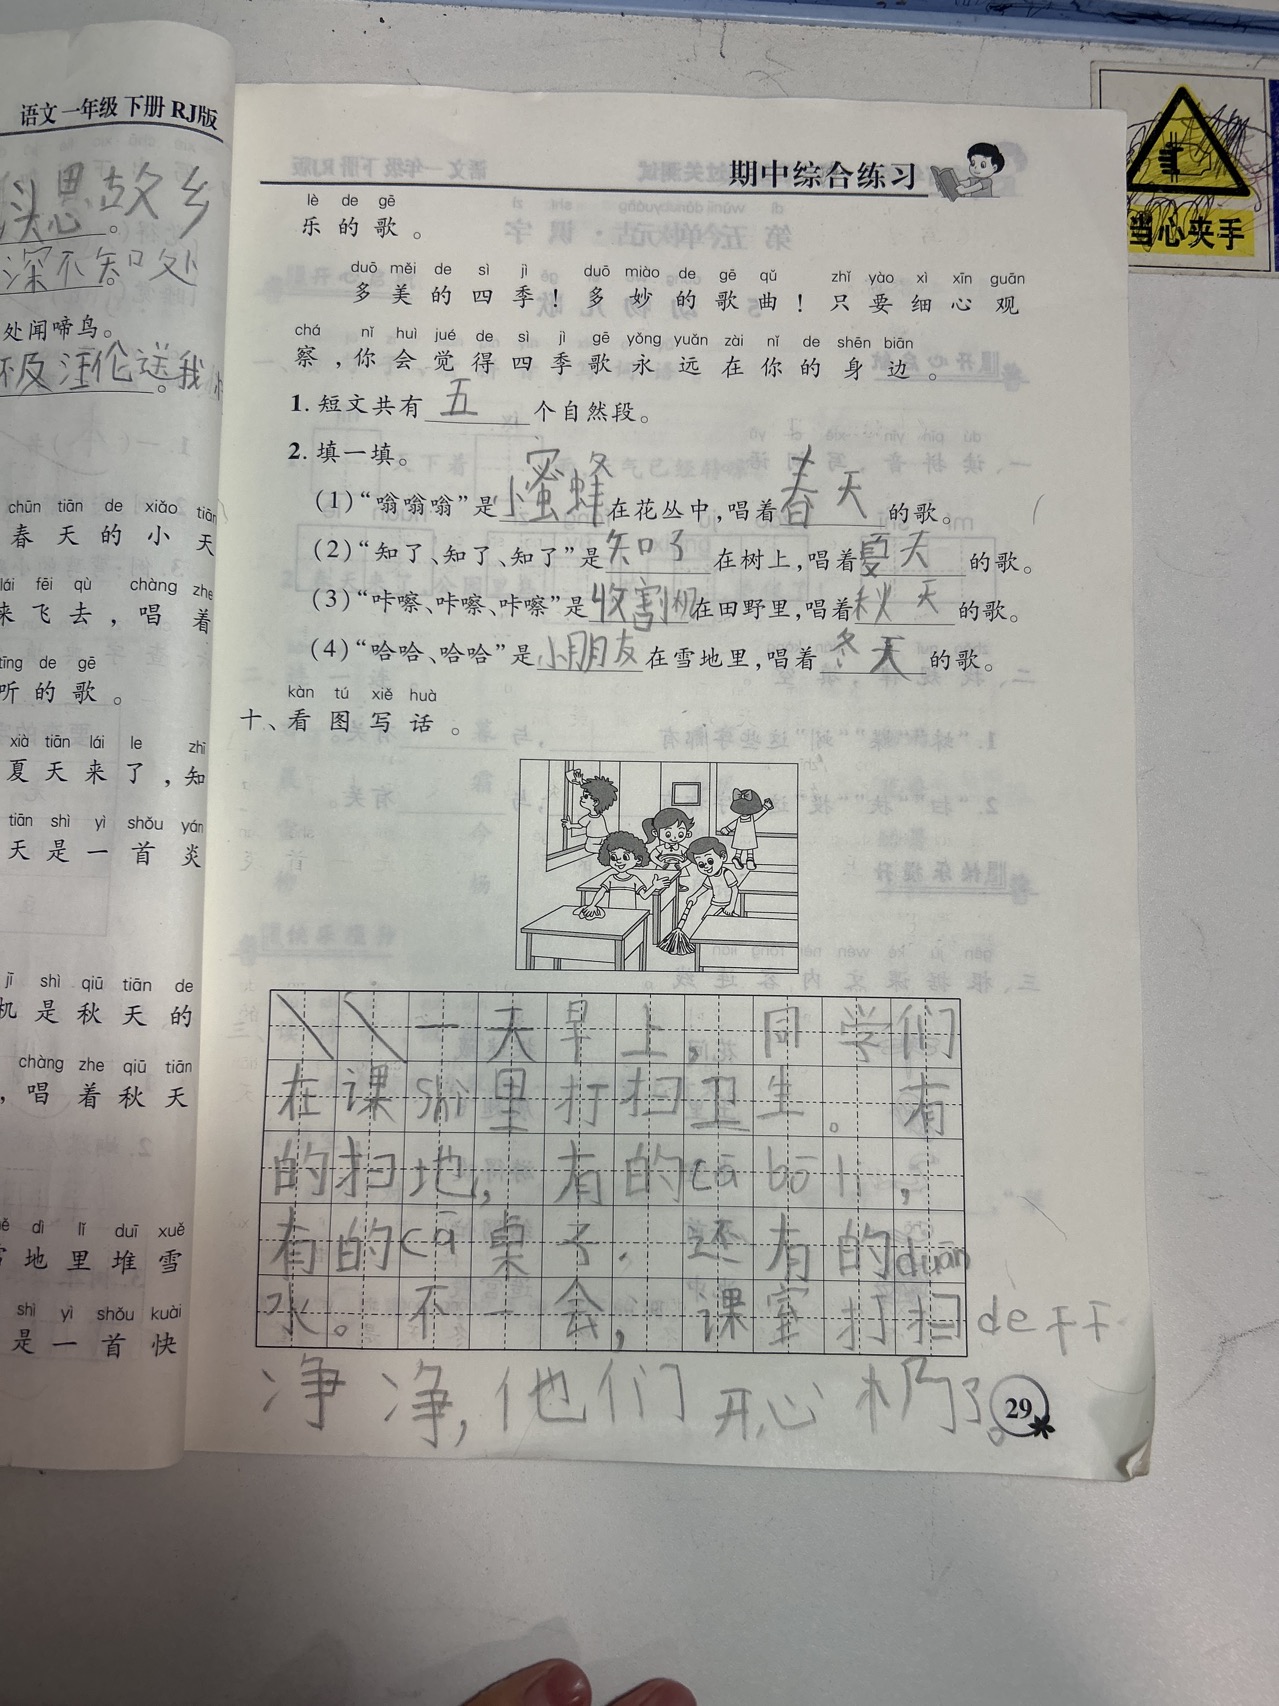 语文一年级 下册 RJ版
头思故乡。
深不知处
处闻啼鸟。
不及汪伦送我
chūn tiān de xiǎo tiān
春天的小天
lái fēi qù chàng zhe
来飞去，唱着
tīng de gē
听的歌。
xià tiān lái le zhī
夏天来了，知
tiān shì yì shǒu yán
天是一首炎
jī shì qiū tiān de
机是秋天的
chàng zhe qiū tiān
，唱着秋天
dì lǐ duī xuě
地里堆雪
shì yì shǒu kuài
是一首快
期中综合练习
lè de gē
乐的歌。
duō měi de sì jì duō miào de gē qǔ zhǐ yào xì xīn guān
多美的四季！多妙的歌曲！只要细心观
chá nǐ huì jué de sì jì gē yǒng yuǎn zài nǐ de shēn biān
察，你会觉得四季歌永远在你的身边。
1. 短文共有 五 个自然段。
2. 填一填。
(1)“嗡嗡嗡”是小蜜蜂在花丛中，唱着春天的歌。
(2)“知了、知了、知了”是知了在树上，唱着夏天的歌。
(3)“咔嚓、咔嚓、咔嚓”是收割机在田野里，唱着秋天的歌。
(4)“哈哈、哈哈”是小朋友在雪地里，唱着冬天的歌。
kàn tú xiě huà
十、看图写话。
一天早上，同学们
在课shì里打扫卫生。有
的扫地，有的cā bō li，
有的cā桌子，还有的duān
水。不一会，课室打扫de干干
净净，他们开心极了。
29
当心夹手